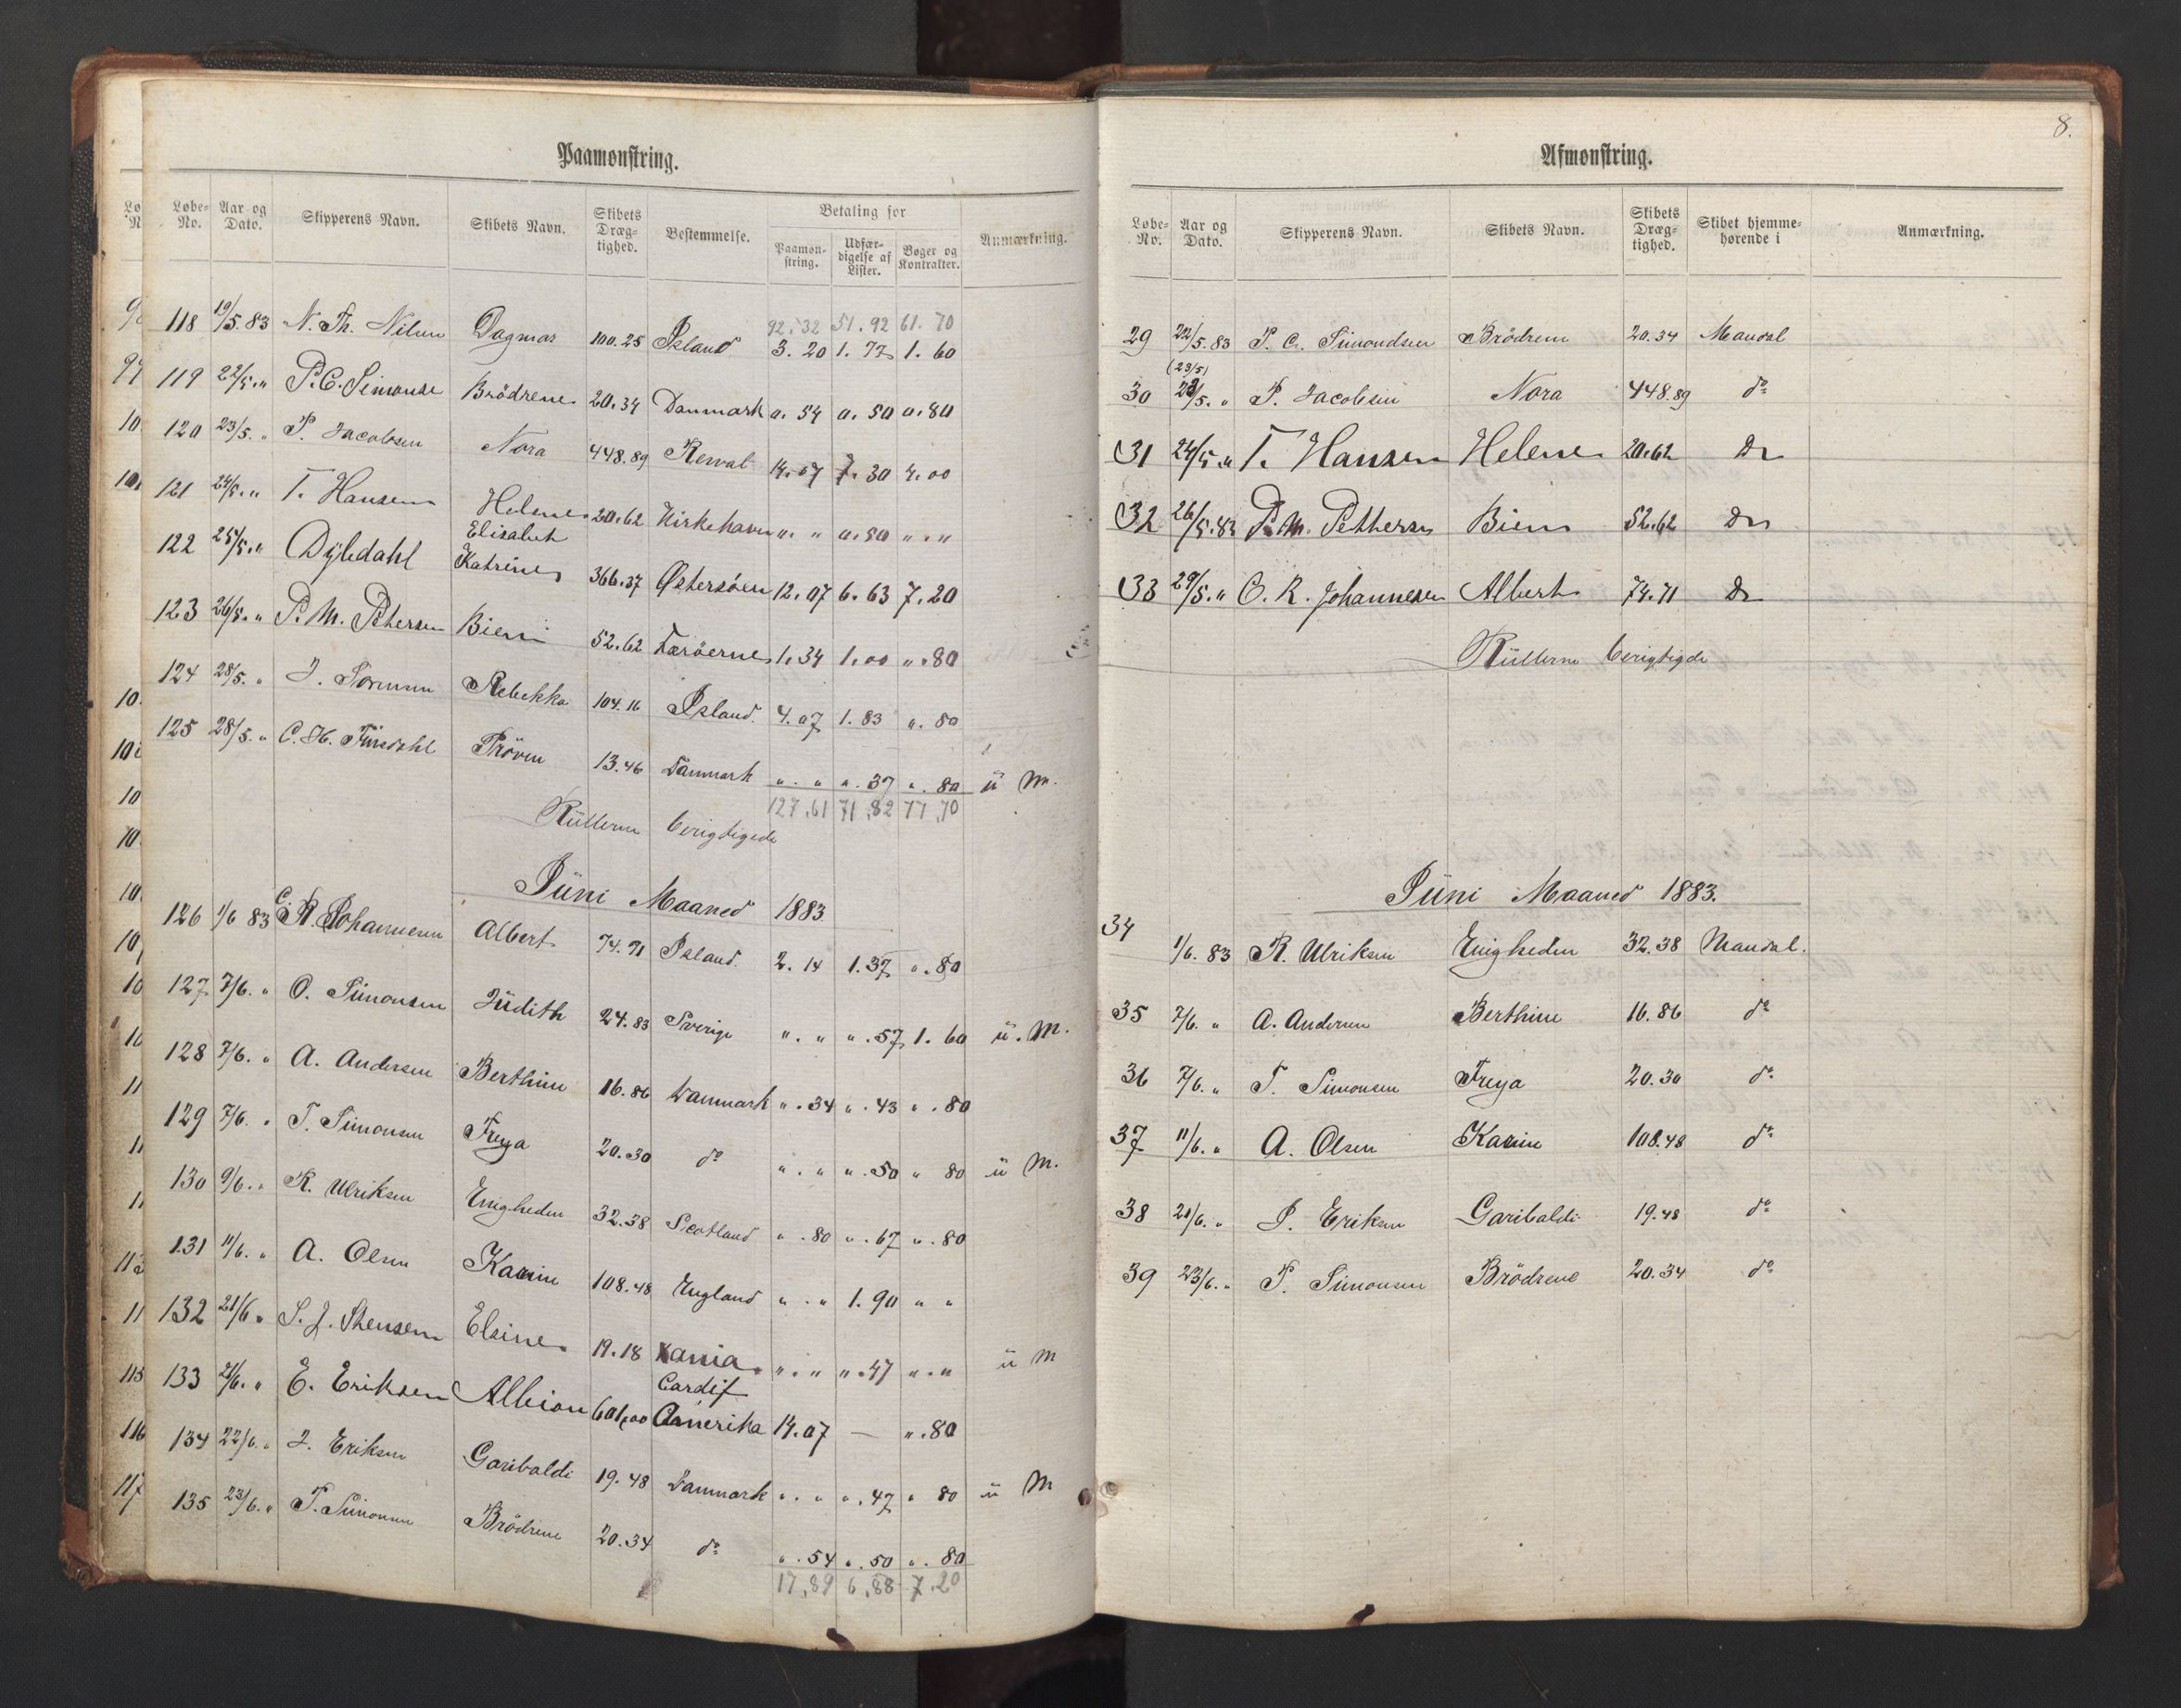 Paamønstring.
Løbe-No. Aar og Dato. Skipperens Navn. Skibets Navn. Skibets Dræg-tighed. Bestemmelse. Betaling for Paamøn-string. Udfær-digelse af Lister. Bøger og Kontrakter. Anmærkning.
92.32 51.92 61.70
118 19/5.83 N. Th. Dagmar 100.25 Island 3.20 1.77 1.60
119 22/5. " P. C. Simonse Brödrene 20.34 Danmark 0.54 0.50 0.80
120 23/5. " P. Jacobsen Nora 448.89 14.07 7.30 4.00
121 24/5. " T. Hansen Helene 20.62 Kirkehavn ". " 0.50 ". "
122 25/5. " Dybdahl Elisabeth Katrine 366.37 Østersøen 12.07 6.63 7.20
123 26/5. " P. M. Petersen Biem 52.62 Færöerne 1.34 1.00 ".80
124 28/5. " J. Rebekka 104.16 Island. 4.07 1.83 ".80
125 28/5. " C. H. Pröven 13.46 Danmark ". " ".37 ".80 ü M.
127,61 71,82 77,70
Rüllerne berigtigede
Jüni Maaned 1883
126 1/6 83 C. R. Johannesen Albert 74.71 Island. 2.14 1.37 ".80
127 7/6. " O. Simonsen Jüdith 24.83 Sverige ". " ".57 1.60 ü. M.
128 7/6. " A. Andersen Berthine 16.86 Danmark ".34 ".43 ".80
129 7/6. " T. Simonsen Freya 20.30 do ". " ".50 " 80 ü M.
130 9/6. " R. Ulriksen Enigheden 32.38 Scotland ".80 ".67 ".80
131 11/6. " A. Olsen Karine 108.48 England ". " 1.90 " "
132 21/6 " S. J. Stensen Elsine 19.18 Xania ". " ".47 ". " ü M
133 21/6. " E. Eriksen Albion 601,00 Cardif Amerika 14.07 — ".80
134 22/6. " J. Eriksen Garibaldi 19.48 Danmark ". " ".47 " 80 ü M
135 23/6. " T. Simonsen Brödrene 20.34 do ".54 ".50 ".80
17,89 6,88 7,20
8.
Afmønstring.
Løbe-No. Aar og Dato. Skipperens Navn. Skibets Navn. Skibets Dræg-tighed. Skibet hjemme-hørende i Anmærkning.
29 22/5.83 P. C. Simondsen Brödrene 20.34 Mandal
(23/5)
30 23/5. " P. Jacobsen Nora 448.89 do
31 24/5. " T. Hansen Helene 20.62 Do
32 26/5.83 P. M. Petthersen Biem 52.62 Do
33 29/5. " C. R. Johannesen Albert 74.71 Do
Rüllerne berigtigede
Jüni Maaned 1883.
34 1/6. 83 R. Ulriksen Enigheden 32.38 Mandal.
35 7/6. " A. Andersen Berthine 16.86 do
36 7/6. " T. Simonsen Freya 20.30 do
37 11/6. " A. Olsen Karine 108.48 do
38 21/6. " J. Eriksen Garibaldi 19.48 do
39 23/6. " T. Simonsen Brödrene 20.34 do